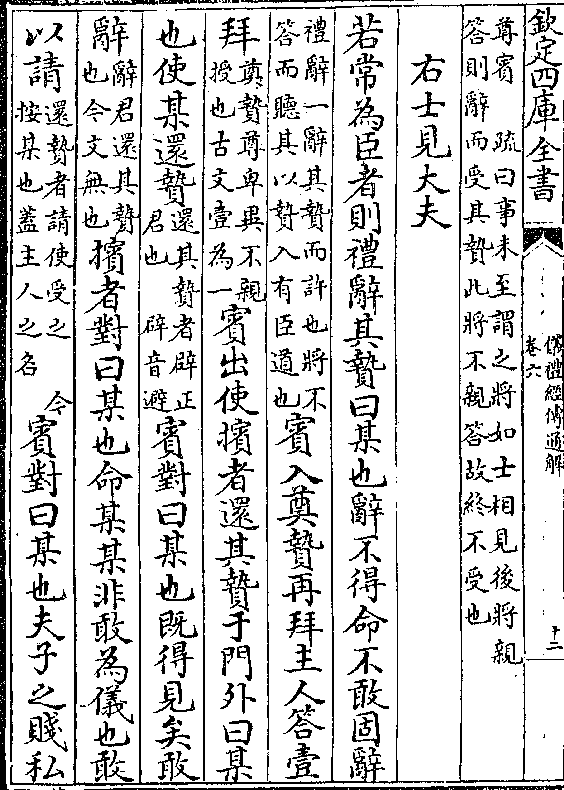 欽定四庫全書
儀禮經傳通解
卷六
十二
尊賓　疏曰事未至謂之將如士相見後將親
答則辭而受其贄此將不親答故終不受也
右士見大夫
若常為臣者則禮辭其贄曰某也辭不得命不敢固辭
禮辭一辭其贄而許也將不
答而聽其以贄入有臣道也
賓入奠贄再拜主人答壹
拜
奠贄尊卑異不親
授也古文壹為一
賓出使擯者還其贄于門外曰某
也使某還贄
還其贄者辟正
君也　辟音避
賓對曰某也既得見矣敢
辭
辭君還其贄
也今文無也
擯者對曰某也命某某非敢為儀也敢
以請
還贄者請使受之　今
按某也蓋主人之名
賓對曰某也夫子之賤私